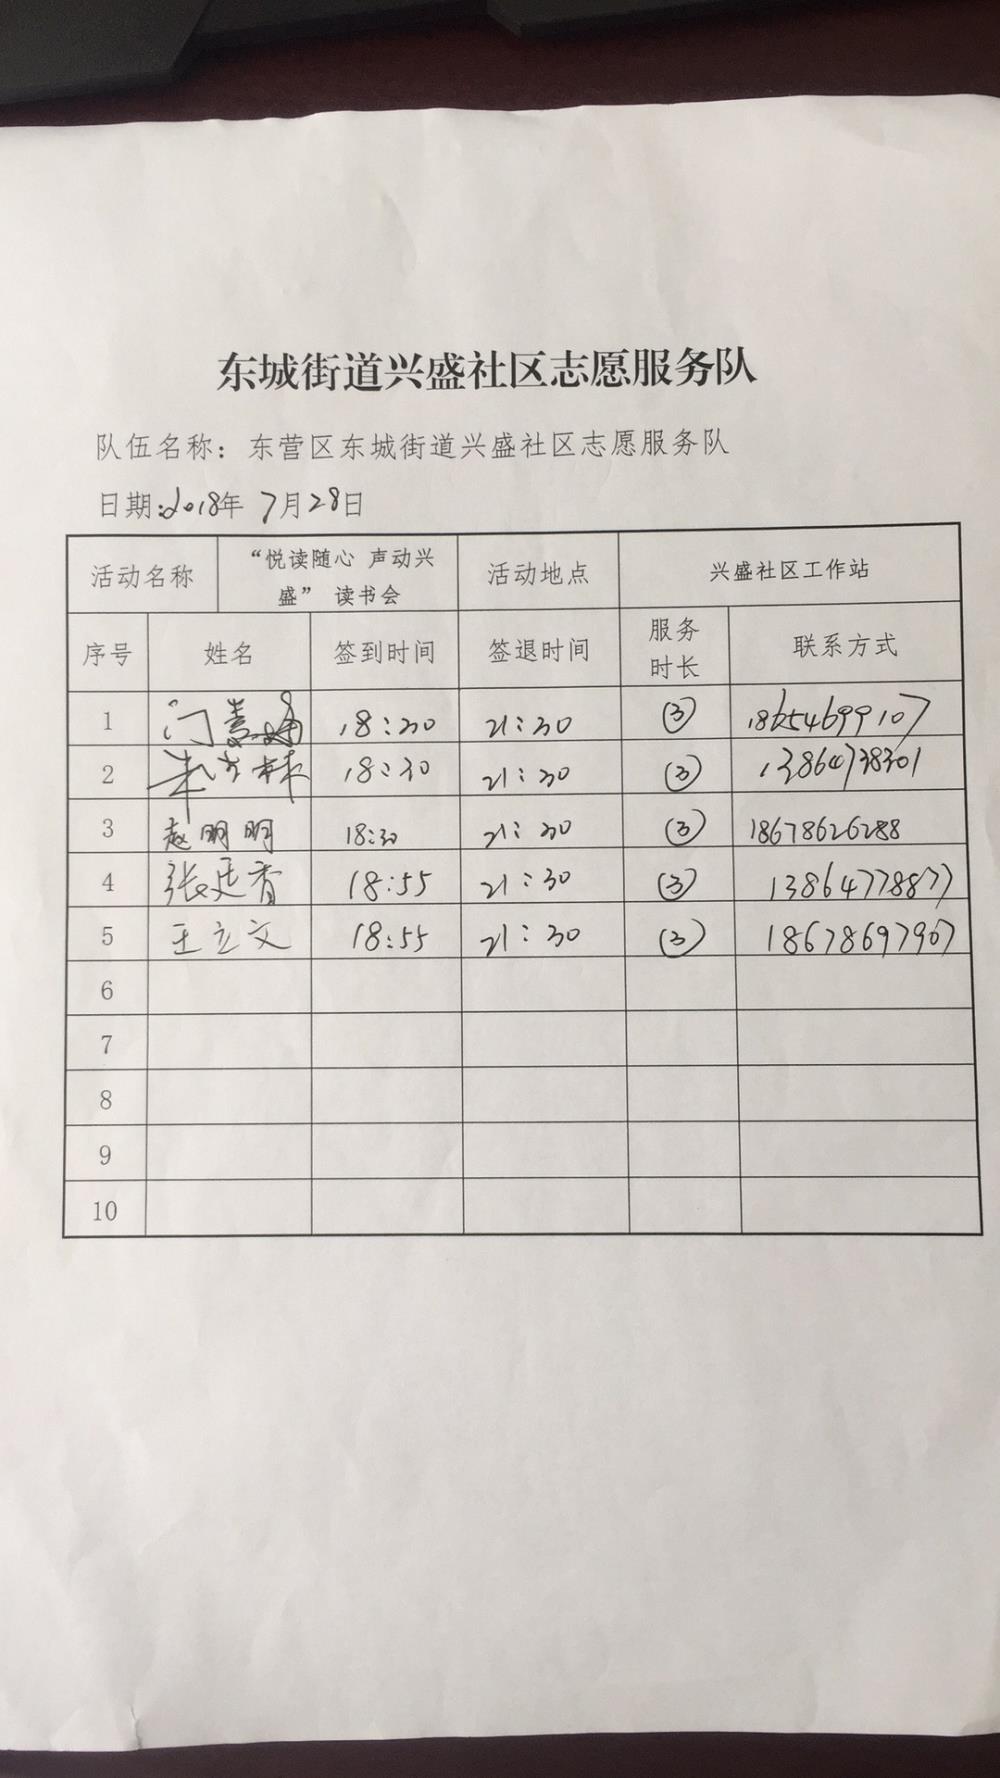 东城街道兴盛社区志愿服务队
队伍名称：东营区东城街道兴盛社区志愿服务队
日期:2018年 7月28日
活动名称 “悦读随心 声动兴盛” 读书会 活动地点 兴盛社区工作站
序号 姓名 签到时间 签退时间 服务时长 联系方式
1 门 18:30 21:30 ③ 18654699107
2 18:30 21:30 ③ 13864738301
3 赵明明 18:30 21:30 ③ 18678626288
4 张廷香 18:55 21:30 ③ 13864778877
5 王立文 18:55 21:30 ③ 18678697907
6
7
8
9
10